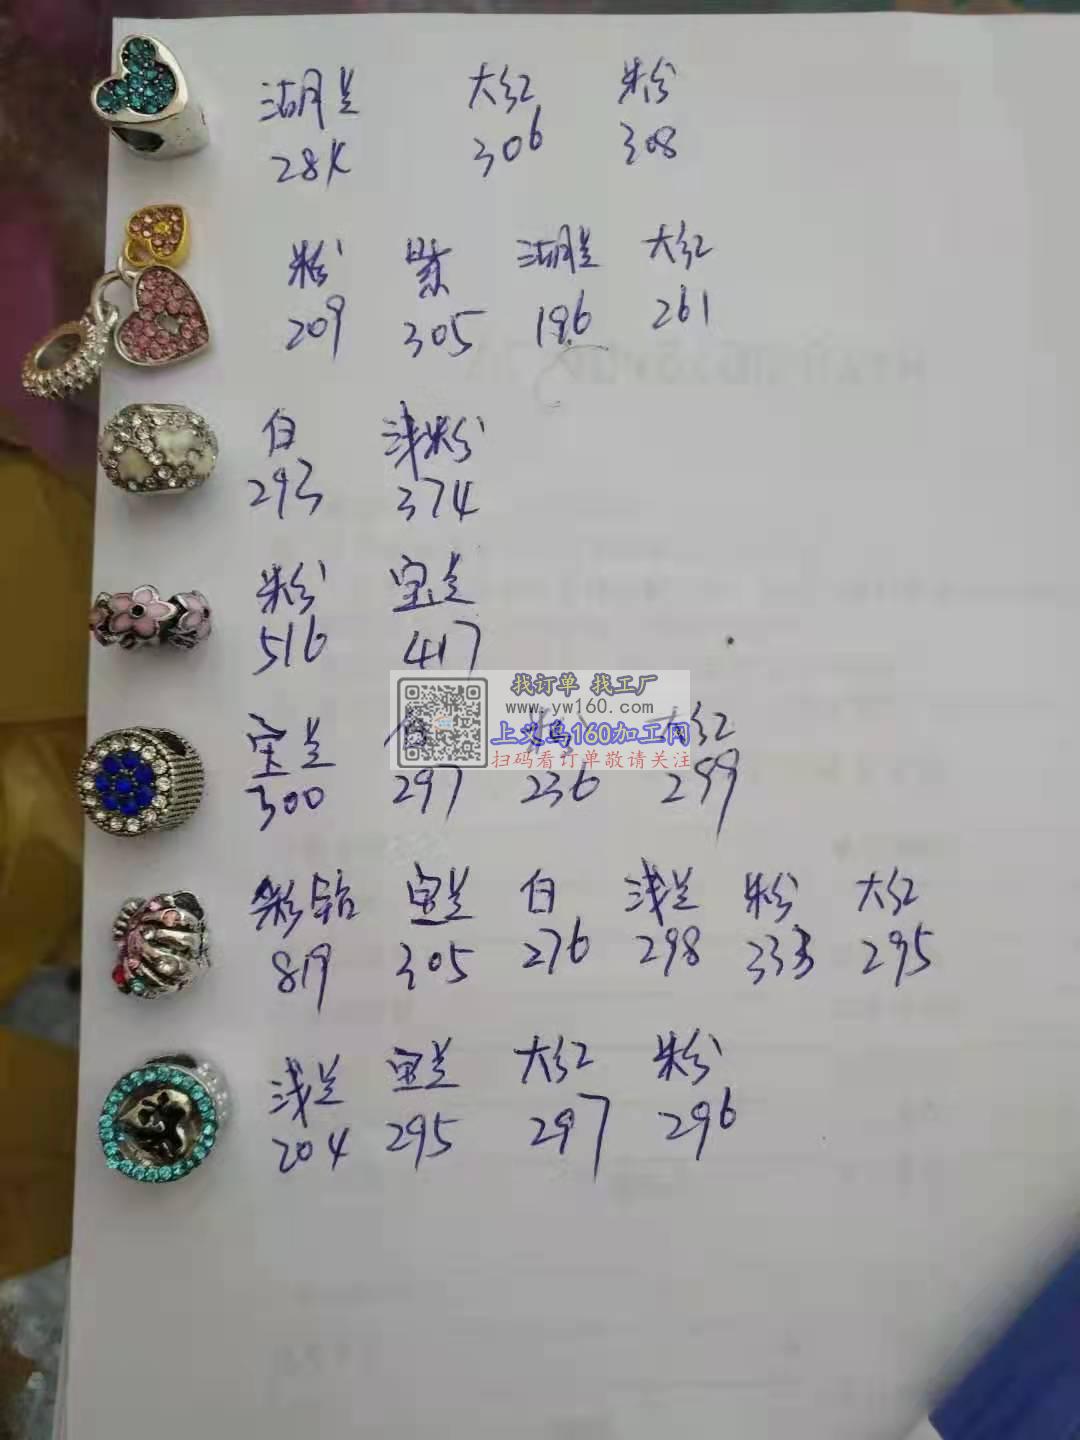 湖兰 大红 粉
284 306 308
粉 紫 湖兰 大红
209 305 196 261
白 浅粉
293 374
粉 宝兰
516 417
找订单 找工厂
www.yw160.com
上义乌160加工网
扫码看订单敬请关注
宝兰 白 粉 大红
300 297 236 299
彩钻 宝兰 白 浅兰 粉 大红
819 305 276 298 333 295
浅兰 宝兰 大红 粉
204 295 297 296